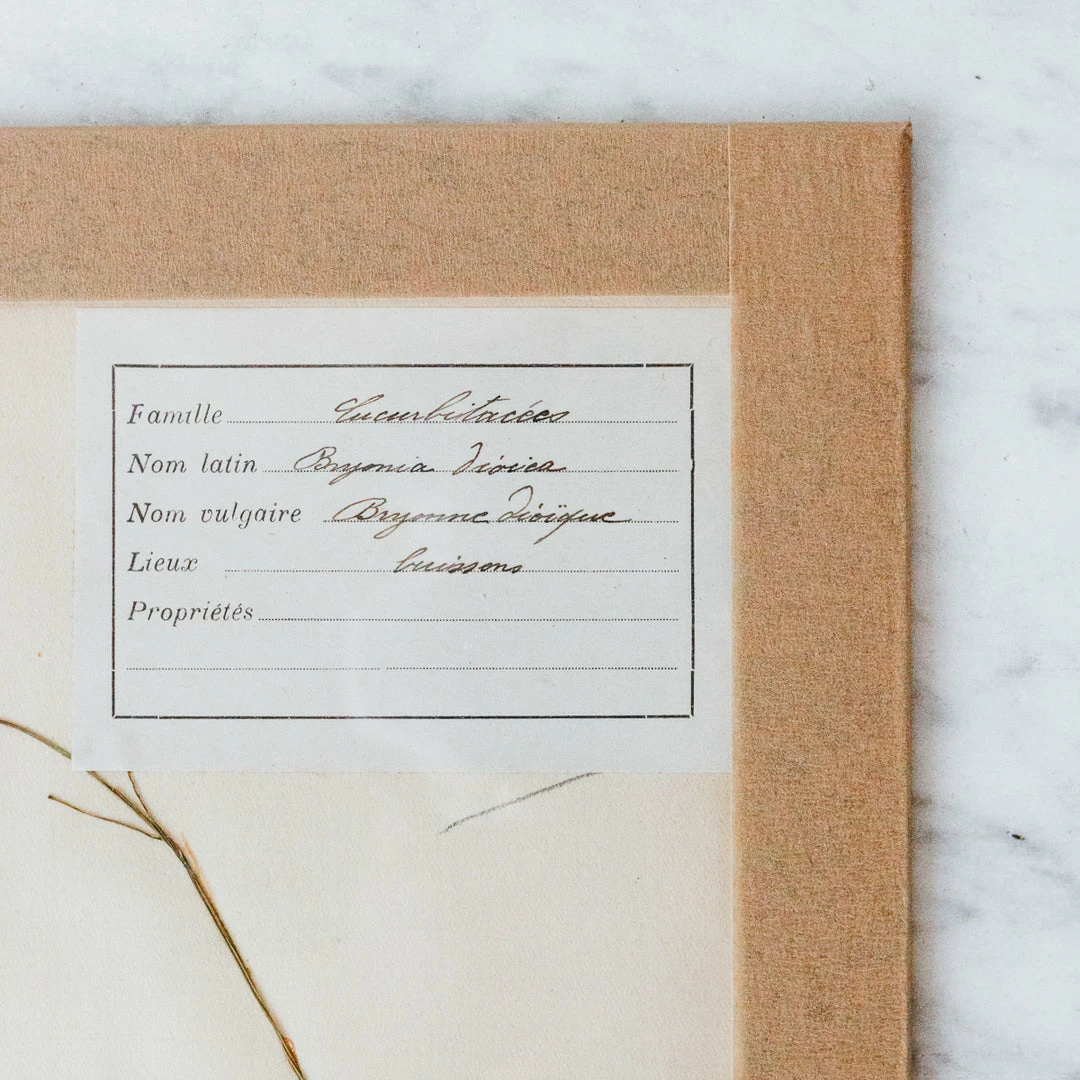 Famille Cucurbitacées
Nom latin Bryonia dioica
Nom vulgaire Bryonne dioïque
Lieux buissons
Propriétés